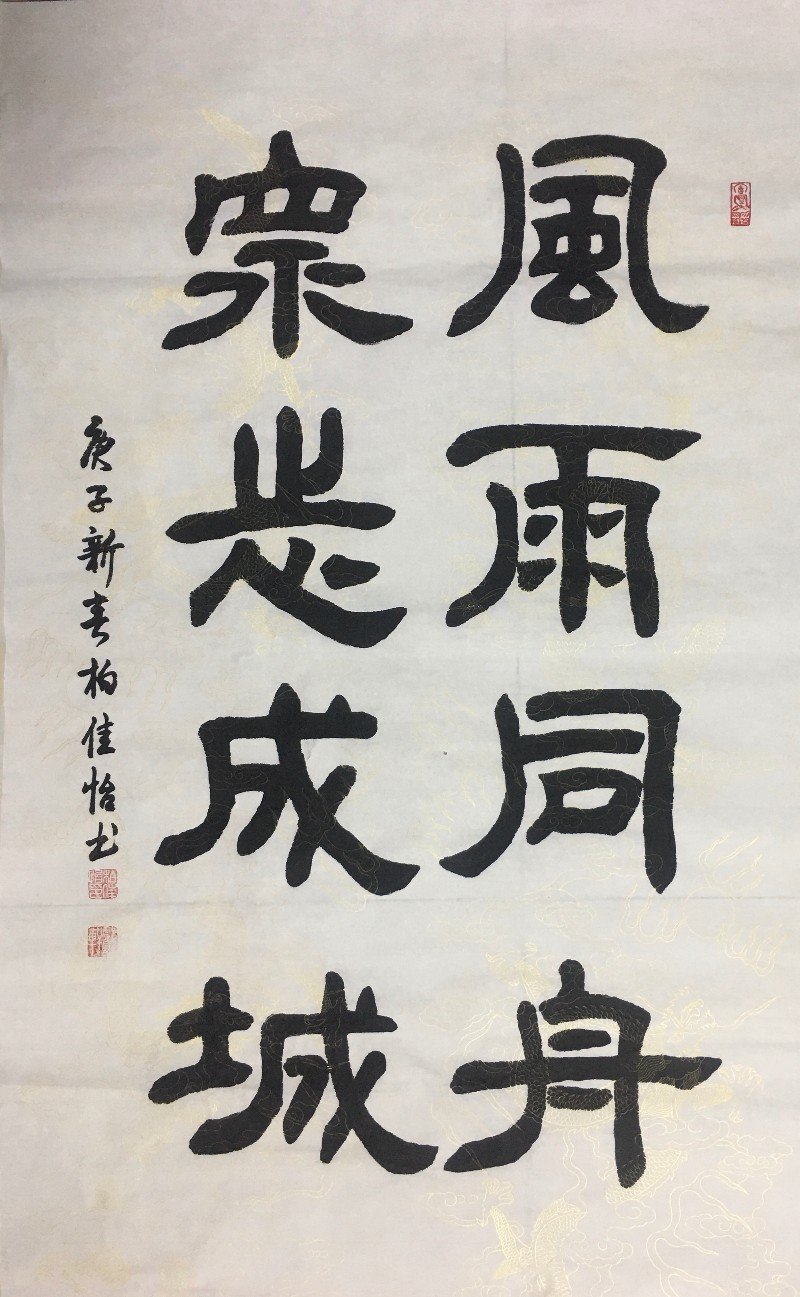 風雨同舟
眾志成城
庚子新春柏佳怡书